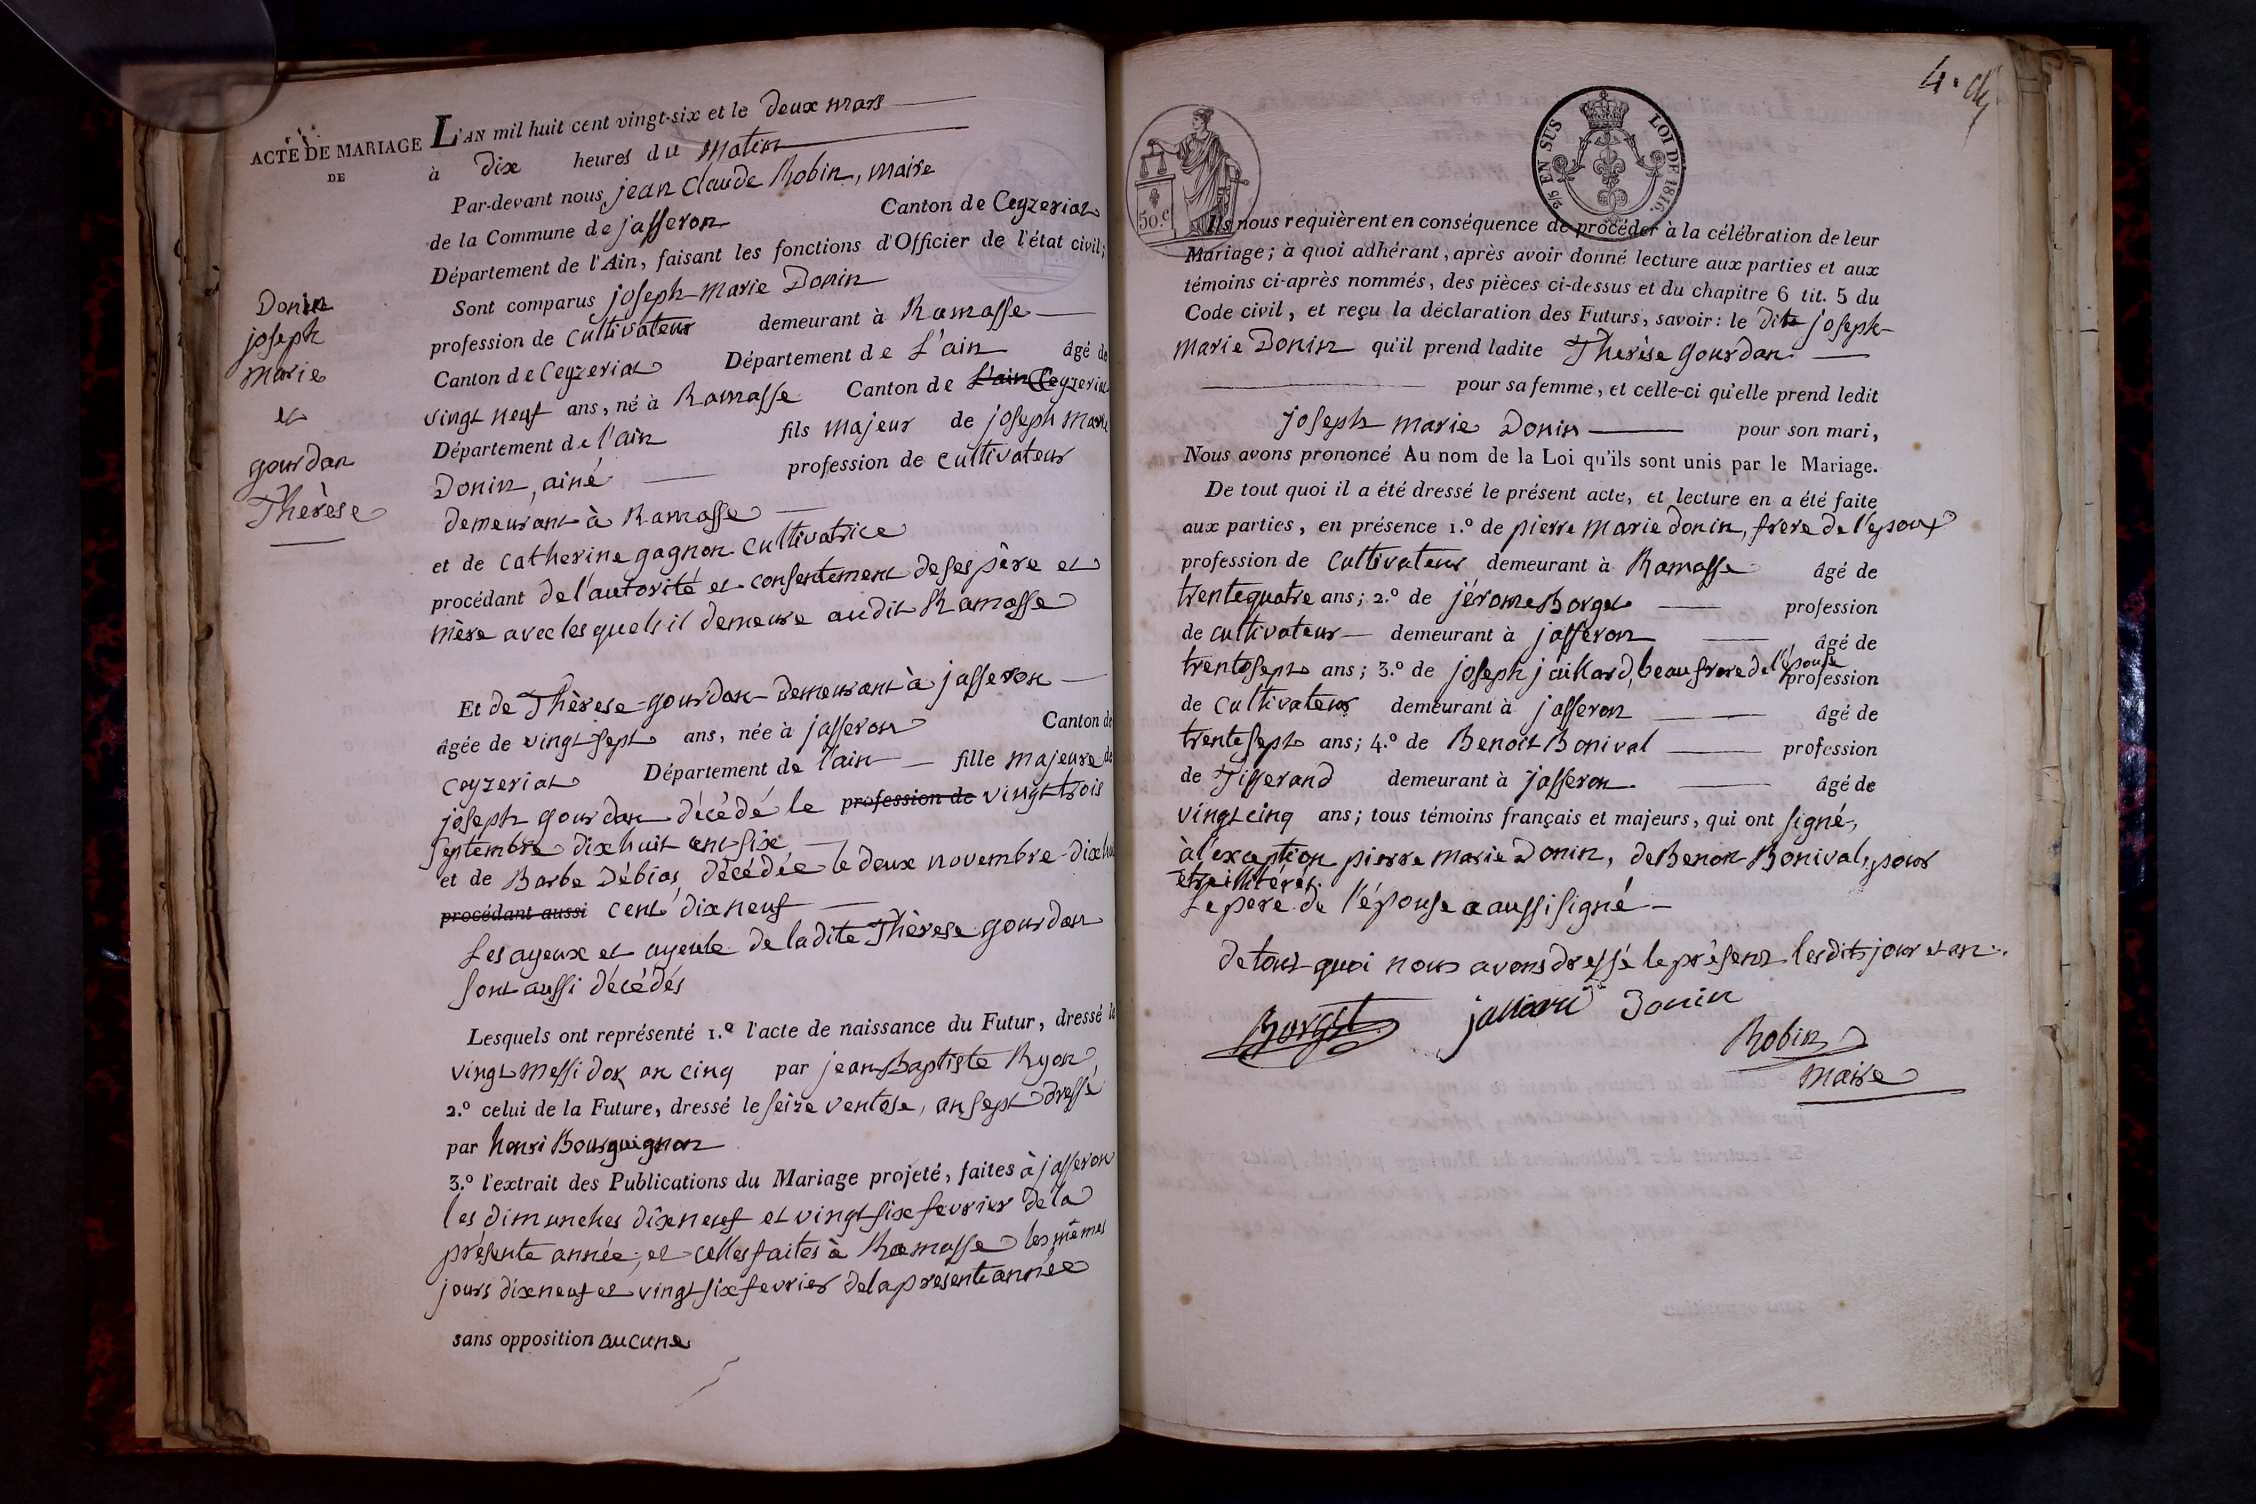 ACTE DE MARIAGE
DE
Donin
joseph
marie
et
gourdan
Thérèse
L'AN mil huit cent vingt-six et le deux mars
à dix heures du matin
Par-devant nous jean Claude Robin, maire
de la Commune de jasseron Canton de Ceyzeriat
Département de l'Ain, faisant les fonctions d'Officier de l'état civil;
Sont comparus joseph-marie Donin
profession de cultivateur demeurant à Ramasse
Canton de Ceyzeriat Département de L'ain âgé de
vingt neuf ans, né à Ramasse Canton de L'ain Ceyzeriat
Département de l'ain fils majeur de joseph marie
Donin, ainé profession de cultivateur
demeurant à Ramasse
et de catherine gagnon cultivatrice
procédant de l'autorité et consentement de ses père et
mère avec lesquels il demeure audit Ramasse
Et de Thérese gourdan demeurant à jasseron
âgée de vingt sept ans, née à jasseron Canton de
ceyzeriat Département de l'ain fille majeure de
joseph gourdan décédé le profession de vingt trois
septembre dix huit cent six
et de Barbe Débias, décédée le deux novembre dix huit
procédant aussi cent dix neuf
Les ayeux et ayeule de la dite Thérese gourdan
sont aussi décédés
Lesquels ont représenté 1.º l'acte de naissance du Futur, dressé le
vingt messidor an cinq par jean Baptiste Ryon
2.º celui de la Future, dressé le seize ventose, an sept dressé
par henri Bourguignon
3.º l'extrait des Publications du Mariage projeté, faites à jasseron
les dimanches dix neuf et vingt six fevrier de la
présente année; et celles faites à Ramasse les mêmes
jours dix neuf et vingt six fevrier de la presente année
sans opposition aucune
4.
50.c
2/5 EN SUS LOI DE 1816.
Ils nous requièrent en conséquence de procéder à la célébration de leur
Mariage; à quoi adhérant, après avoir donné lecture aux parties et aux
témoins ci-après nommés, des pièces ci-dessus et du chapitre 6 tit. 5 du
Code civil, et reçu la déclaration des Futurs, savoir: le dit joseph-
marie Donin qu'il prend ladite Therèse gourdan
pour sa femme, et celle-ci qu'elle prend ledit
joseph marie Donin pour son mari,
Nous avons prononcé Au nom de la Loi qu'ils sont unis par le Mariage.
De tout quoi il a été dressé le présent acte, et lecture en a été faite
aux parties, en présence 1.º de pierre marie donin, frere de l'epoux
profession de cultivateur demeurant à Ramasse âgé de
trente quatre ans; 2.º de jérome Borget profession
de cultivateur demeurant à jasseron âgé de
trente sept ans; 3.º de joseph jaillard, beau frere de l'épouse profession
de cultivateur demeurant à jasseron âgé de
trente sept ans; 4.º de Benoit Bonival profession
de Tisserand demeurant à jasseron âgé de
vingt cinq ans; tous témoins français et majeurs, qui ont signé,
à l'exception pierre marie Donin, de Benoit Bonival, pour
être illitérés.
Le pere de l'épouse a aussi signé
de tout quoi nous avons dressé le présent lesdits jour et an.
Borget jalliard Donin
Robin
maire